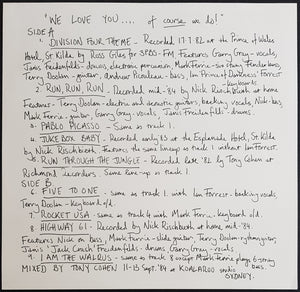 "WE LOVE YOU.... of course we do!"
SIDE A
1. DIVISION FOUR THEME - Recorded 17.7.82 at the Prince of Wales
Hotel, St Kilda by Ross Giles for 3PBS-FM Features Garry Gray - vocals,
Janis Freidenfelds - drums, electronic percussion, Mark Ferrie - six string Fenderbass,
Terry Doolan - guitar, Andrew Picouleau - bass, Ian Prince of Darkness Forrest
2. RUN, RUN, RUN. Recorded mid-'84 by Nick Rischbieth at home
Features - Terry Doolan - electric and acoustic guitars, backing vocals, Nick - bass,
Mark Ferrie - guitar, Garry Gray - vocals, Janis Freidenfelds - drums.
3. PABLO PICASSO - Same as track 1.
4. JUKE BOX BABY - Recorded early at the Esplanade Hotel, St Kilda
by Nick Rischbieth. Features the same lineup as track 1 without Ian Forrest.
5. RUN THROUGH THE JUNGLE - Recorded late '82 by Tony Cohen at
Richmond recorders. Same line-up as track 1.
SIDE B
6. FIVE TO ONE - same as track 1 with Ian Forrest - backing vocals,
Terry Doolan - keyboard o/d.
7. ROCKET USA - same as track 4 with Mark Ferrie, keyboard o/d.
8. HIGHWAY 61 - Recorded by Nick Rischbieth at home mid-'84.
Features Nick on bass, Mark Ferrie - slide guitar, Terry Doolan - rhythm guitar,
Janis 'Jack Coach' Freidenfelds - drums Garry Gray - vocals
9. I AM THE WALRUS - same as track 8 except Mark Ferrie plays 6 string
MIXED BY TONY COHEN 11-13 SEPT. '84 at KOALAROO studio bass.
SYDNEY.